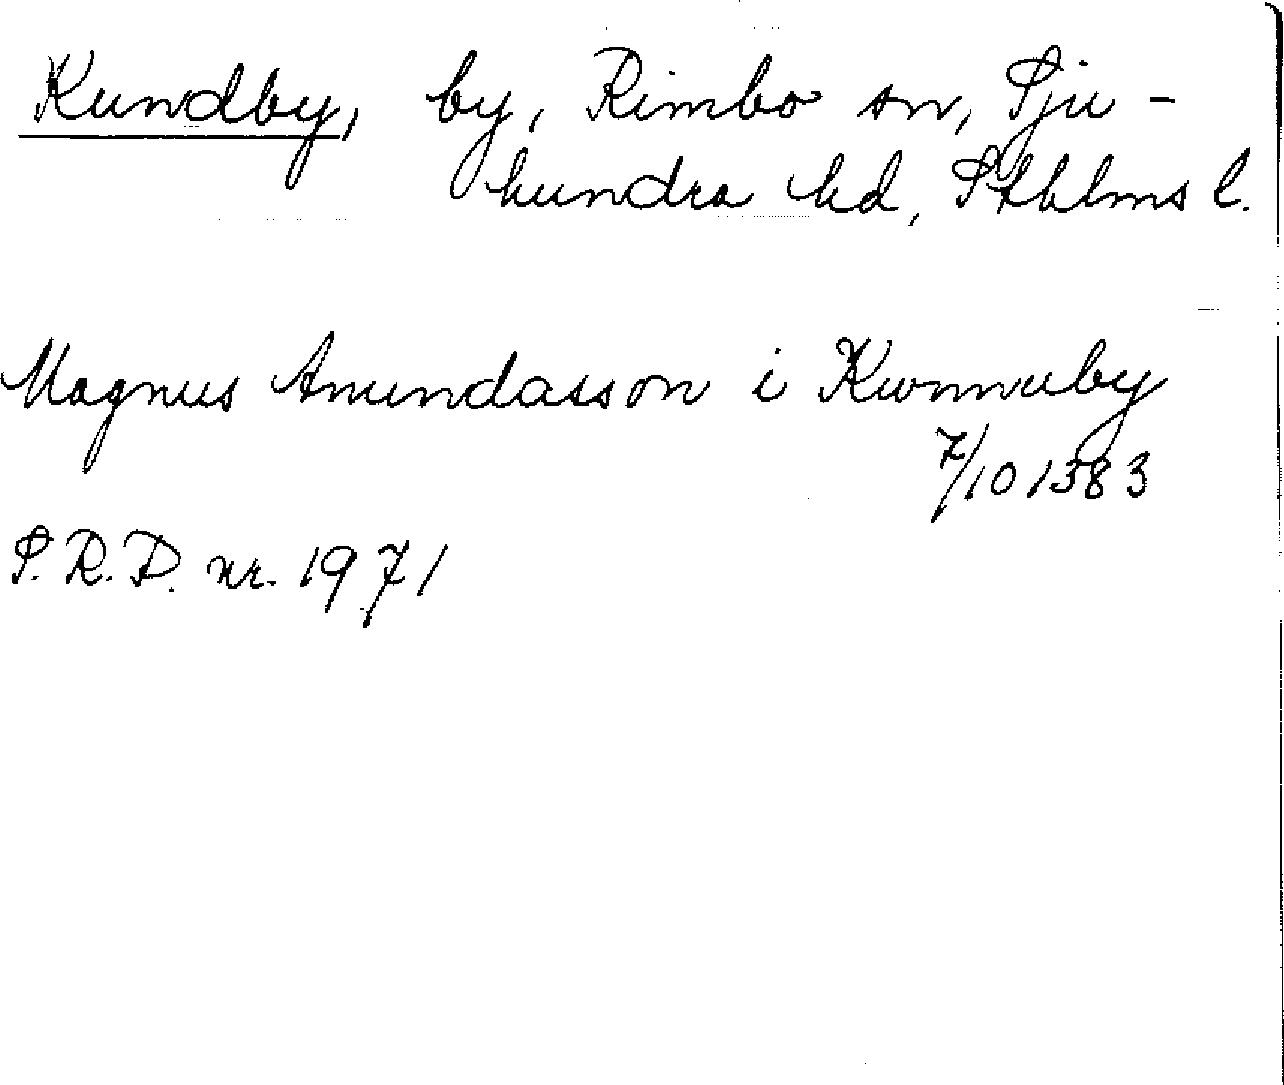 Kundby, by, Rimbo sn, Sju-
hundra hd, Sthlms l.
Magnus Amundasson i Kwnnuby
7/10 1383
S.R.P. nr. 1971